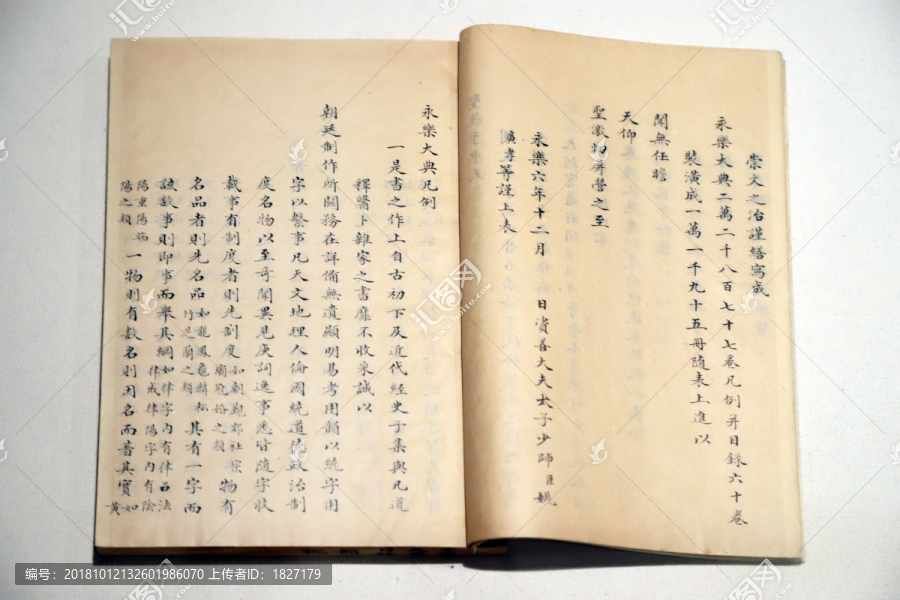 崇文之治謹繕寫成
永樂大典二萬二千八百七十七卷凡例并目錄六十卷
裝潢成一萬一千九十五冊随表上進以
聞無任瞻
天仰
聖激切屏營之至
永樂六年十二月 日資善大夫太子少師臣姚
廣孝等謹上表
永樂大典凡例
一是書之作上自古初下及近代經史子集與凡道
釋醫卜雜家之書靡不收采誠以
朝廷制作所關務在詳備無遺顯明易考用韻以統字用
字以繫事凡天文地理人倫國統道德政治制
度名物以至奇聞異見庾詞逸事悉皆随字收
載事有制度者則先制度如朝覲郊社宗廟冠婚之類物有
名品者則先名品如龍鳳龜麟松竹芝蘭之類其有一字而
該數事則即事而舉其綱如律字內有律呂法律戒律陽字內有陰
陽重陽端陽之類一物則有數名則因名而著其實如黃
编号：20181012132601986070 上传者ID：1827179
汇图网